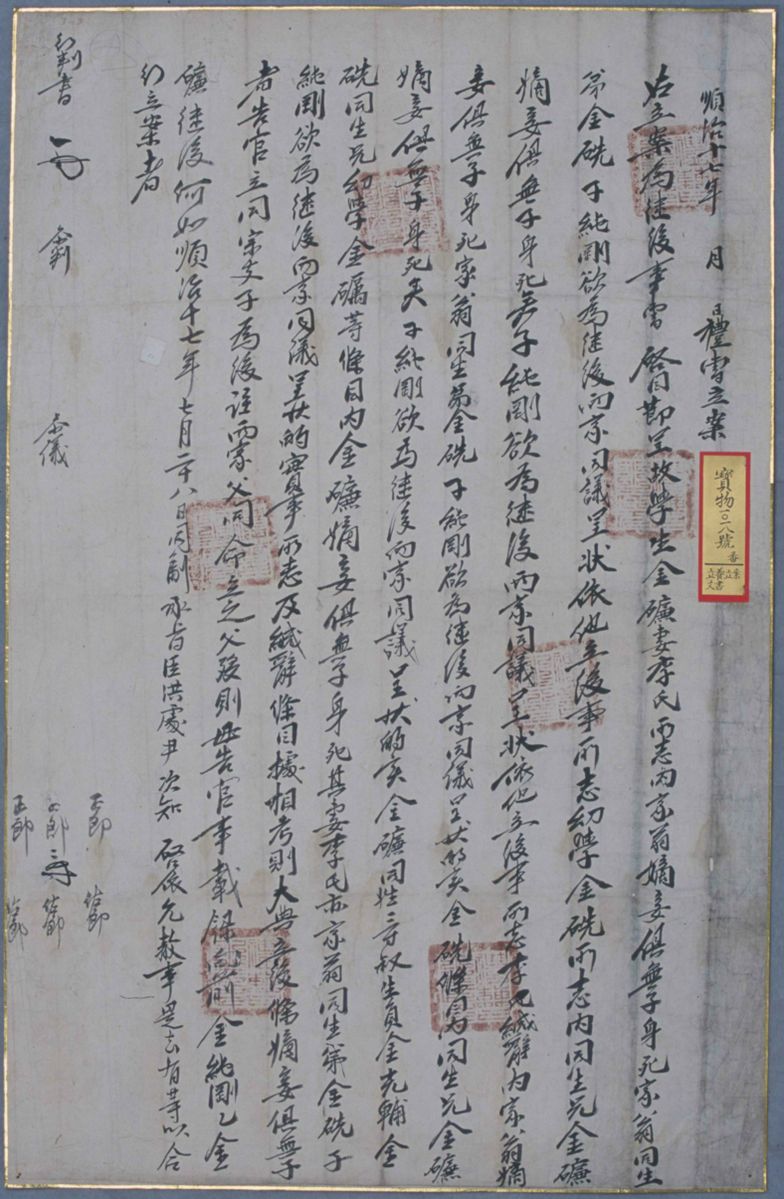 順治十七年 月 日禮曹立案
右立案爲繼後事曹 啓目節呈故學生金礦妻李氏所志內家翁嫡妾俱無子身死家翁同生
弟金硡子純剛欲爲繼後兩家同議呈狀依他立後事所志幼學金硡所志內同生兄金礦
嫡妾俱無子身死矣子純剛欲爲繼後兩家同議呈狀依他立後事所志李氏緘辭內家翁嫡
妾俱無子身死家翁同生弟金硡子純剛欲爲繼後兩家同議呈狀的實金硡條目內同生兄金礦
嫡妾俱無子身死矣子純剛欲爲繼後兩家同議呈狀的實金礦同姓三寸叔生員金克輔金
硡同生兄幼學金礪等條目內金礦嫡妾俱無子身死其妻李氏亦家翁同生弟金硡子
純剛欲爲繼後兩家同議呈狀的實事所志及緘辭條目據相考則大典立後條嫡妾俱無子
者告官立同宗支子爲後註兩家父同命立之父歿則母告官事載錄 前金純剛乙金
礦繼後何如順治十七年七月二十八日同副承旨臣洪處尹次知 啓依允教事是去有等以合
行立案者
行判書 參判 參議
正郎 佐郎
正郎 佐郎
正郎 佐郎
寶物一〇一八號